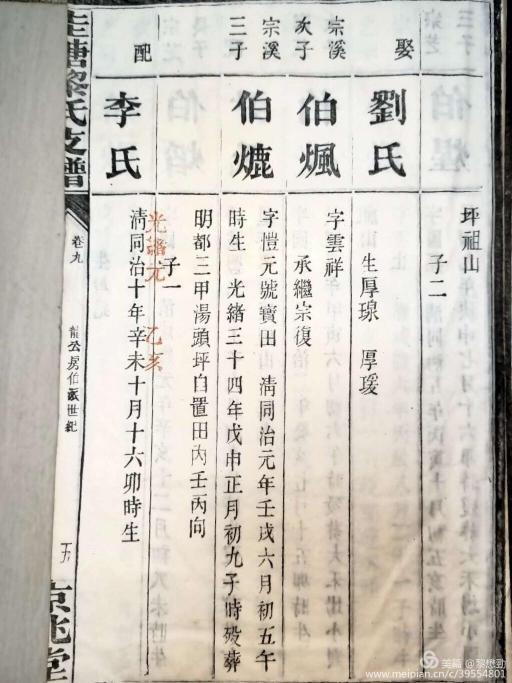 坪祖山
子二
娶
劉氏
生厚琅 厚瑗
宗溪
次子
伯煈
字雲祥
承繼宗復
宗溪
三子
伯熝
字愷元號寶田 清同治元年壬戌六月初五午
時生 光緒三十四年戊申正月初九子時殁葬
明都三甲湯頭坪自置田丙壬丙向
子一
光緒元 乙亥
配
李氏
清同治十年辛未十月十六卯時生
圭塘黎氏支譜
卷九
龍公房伯派世紀
五
京兆堂
美篇 @黎懋勁
www.meipian.cn/c/39554801